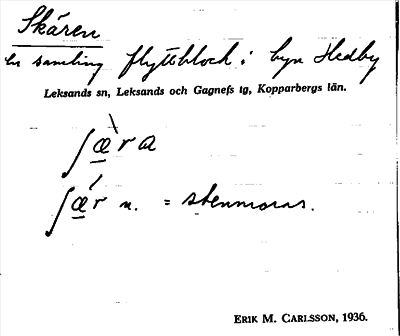 Skären
en samling flyttblock i byn Hedby
Leksands sn, Leksands och Gagnefs tg, Kopparbergs län.
ʃæ̀ra
ʃǽr n. = stenmoras.
ERIK M. CARLSSON, 1936.